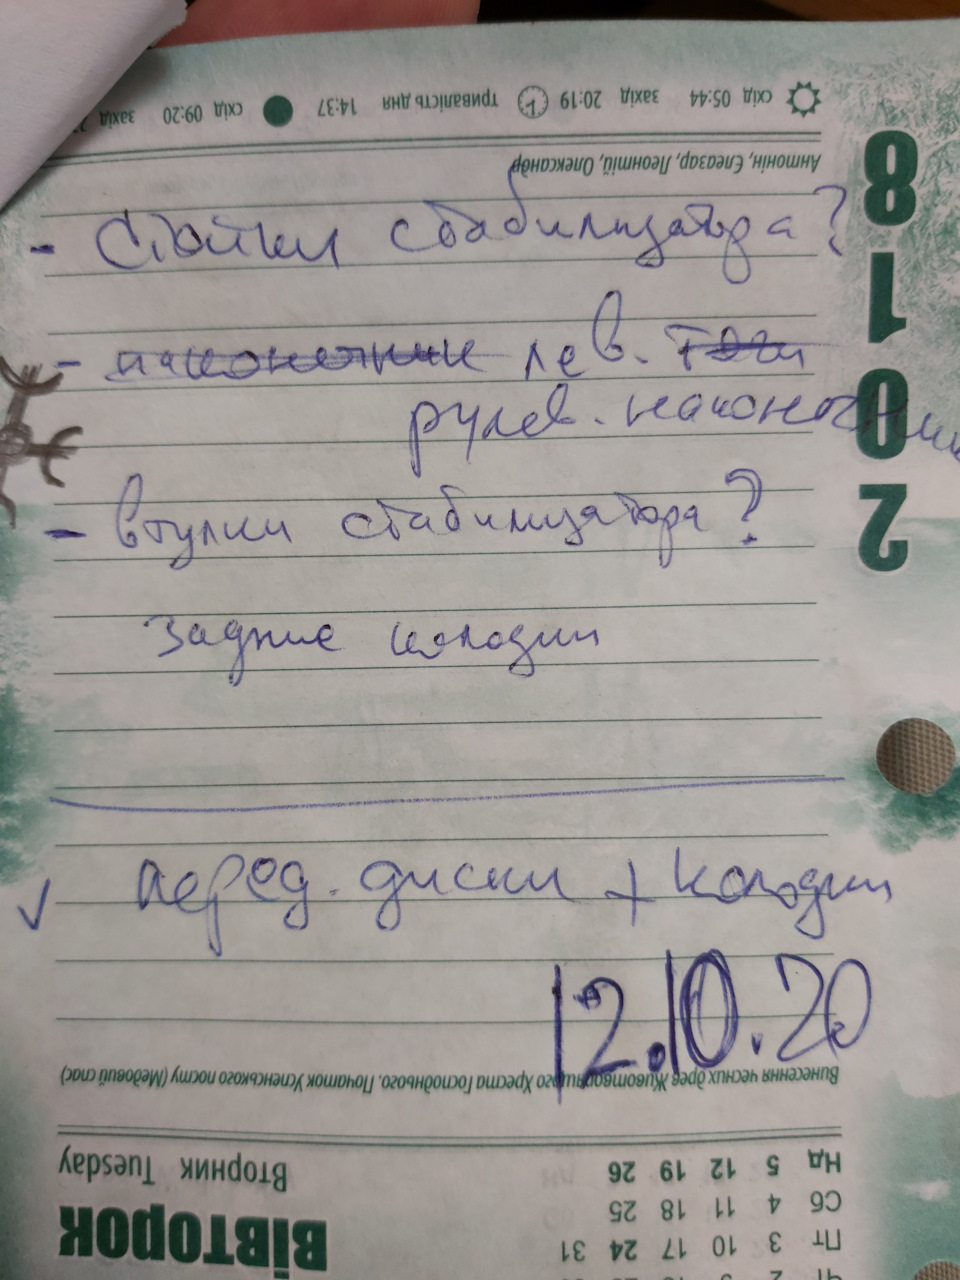 - Стойки стабилизатора?
- наконечники лев. тяги
рулев. наконечник
- втулки стабилизатора?
Задние колодки
✓ перед. диски + колодки
12.10.20
схід 05:44 захід 20:19 тривалість дня 14:37 схід 09:20 захід
Антонін, Єлеазар, Леонтій, Олександр
2018
Винесення чесних древ Животворящого Хреста Господнього. Початок Успенського посту (Медовий спас)
ВІВТОРОК
Вторник Tuesday
Чт 2
Пт 3 10 17 24 31
Сб 4 11 18 25
Нд 5 12 19 26